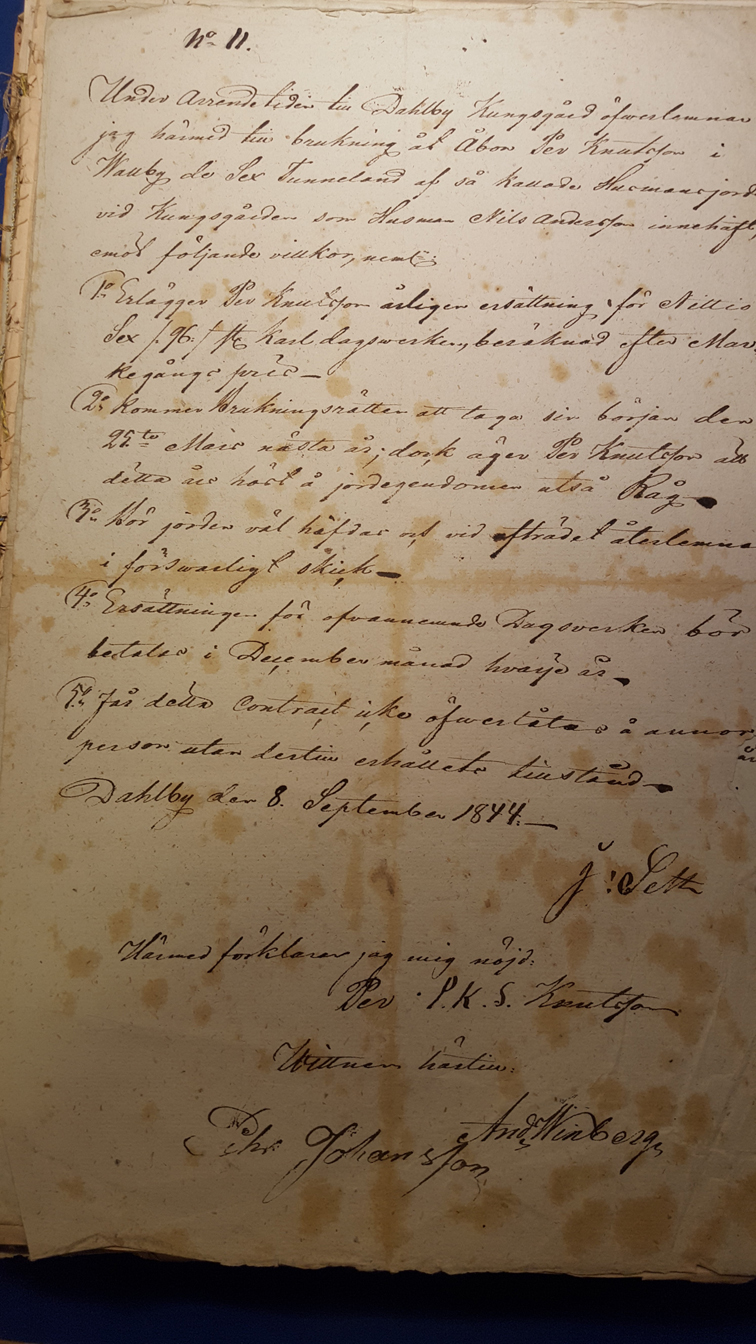 No 11.
Under Arrendetiden till Dahlby Kungsgård öfwerlemnar
jag härmed till brukning åt Åbon Per Knutsson i
Wallby de Sex Tunneland af så kallade Husmansjord
vid Kungsgården som Husman Nils Andersson innehaft,
emot följande villkor, neml:
1o Erlägger Per Knutsson årligen ersättning för Nittio
Sex /96./ st Karl dagswerken, beräknad efter Mar-
kegångs pris —
2o kommer Brukningsrätten att taga sin början den
25te Mars nästa år; dock äger Per Knutsson att
detta års höst å jordegendomen utså Råg —
3o Bör jorden väl häfdas och vid afträdet återlemnas
i förswarligt skick —
4o Ersättningen för ofvannemnde Dagsverken bör
betalas i December månad hvarje år —
5o Får detta Contract icke öfwerlåtas å annor
person utan dertill erhållets tillstånd —
Dahlby den 8. September 1844. —
J: Seth
Härmed förklarar jag mig nöjd:
Per P. K. S. Knutsson
Wittnen härtill:
And Winberg
Pehr Johansson